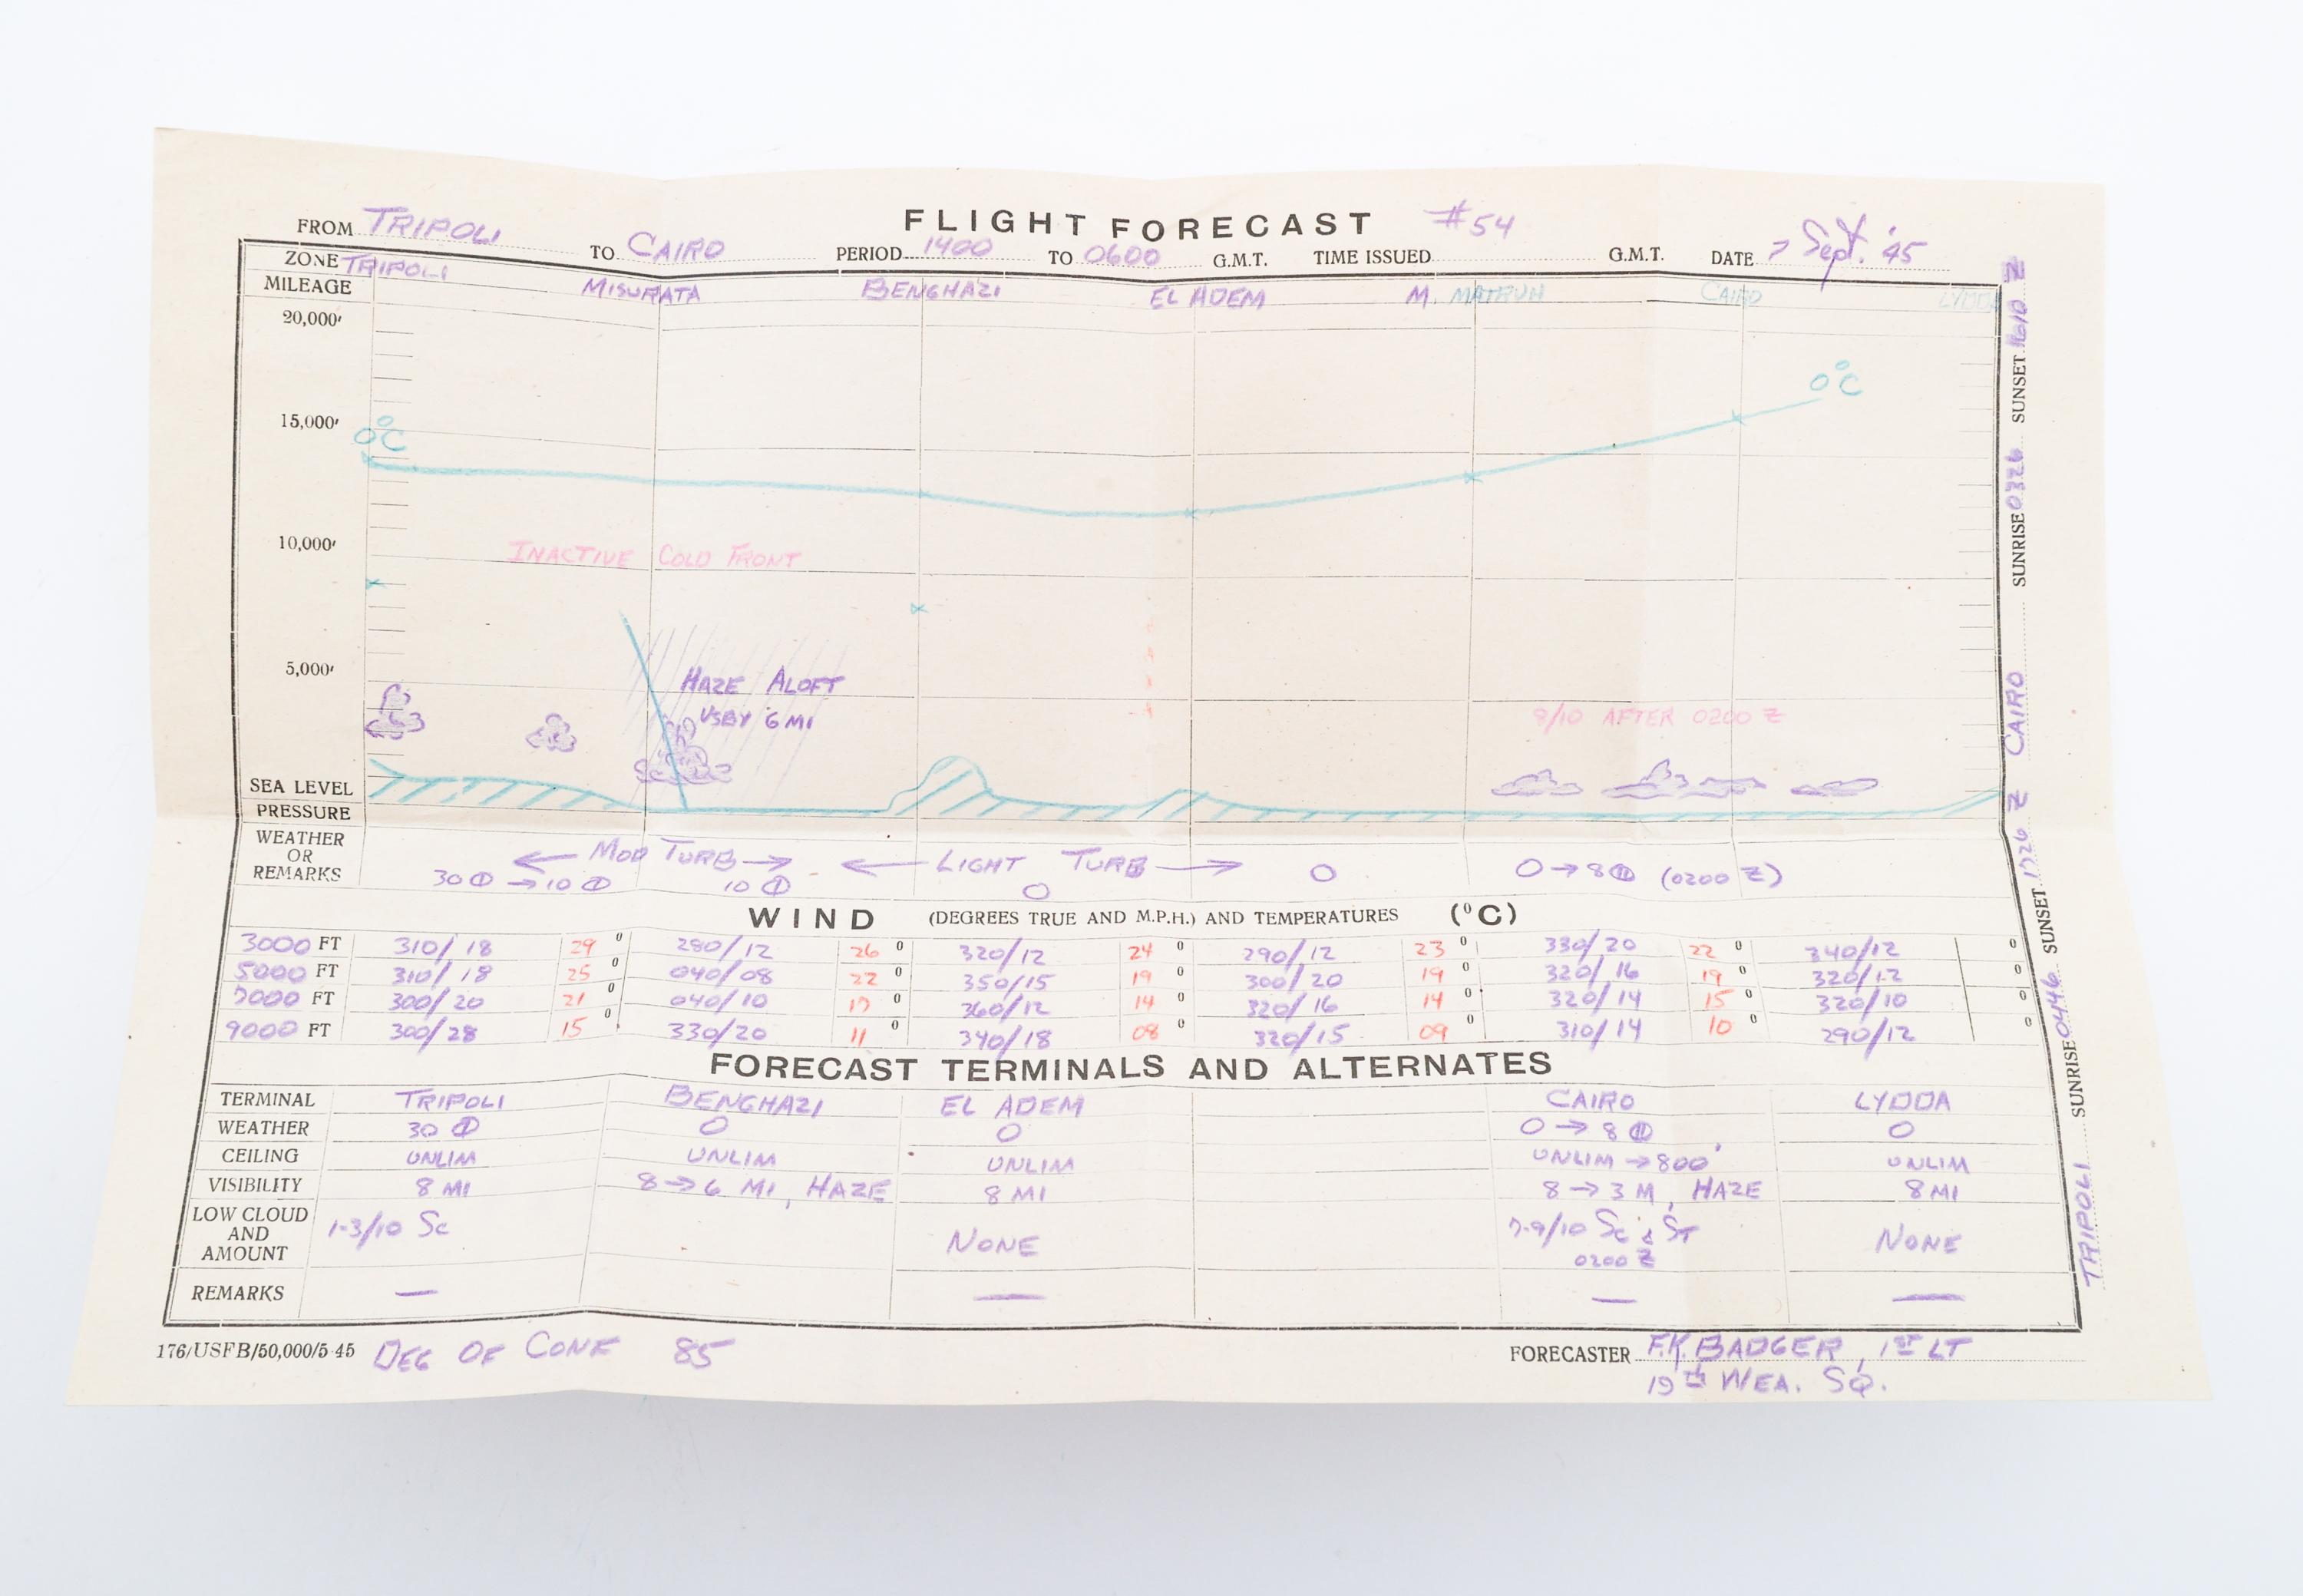 FLIGHT FORECAST #54
FROM TRIPOLI TO CAIRO PERIOD 1400 TO 0600 G.M.T. TIME ISSUED G.M.T. DATE 7 Sept. '45
ZONE TRIPOLI MISURATA BENGHAZI EL ADEM M. MATRUH CAIRO LYDDA
MILEAGE
20,000'
15,000'
0°C 0°C
10,000'
INACTIVE COLD FRONT
5,000'
HAZE ALOFT
VSBY 6 MI
9/10 AFTER 0200 Z
SEA LEVEL
PRESSURE
WEATHER OR REMARKS
← MOD TURB → ← LIGHT TURB →
30 ⦶ → 10 ⦶ 10 ⦶ O O O → 8 ⦷ (0200 Z)
WIND (DEGREES TRUE AND M.P.H.) AND TEMPERATURES (°C)
3000 FT 310/18 29° 280/12 26° 320/12 24° 290/12 23° 330/20 22° 340/12 °
5000 FT 310/18 25° 040/08 22° 350/15 19° 300/20 19° 320/16 19° 320/12 °
7000 FT 300/20 21° 040/10 17° 360/12 14° 320/16 14° 320/14 15° 320/10 °
9000 FT 300/28 15° 330/20 11° 340/18 08° 320/15 09° 310/14 10° 290/12 °
FORECAST TERMINALS AND ALTERNATES
TERMINAL TRIPOLI BENGHAZI EL ADEM CAIRO LYDDA
WEATHER 30 ⦶ O O O → 8 ⦷ O
CEILING UNLIM UNLIM UNLIM UNLIM → 800' UNLIM
VISIBILITY 8 MI 8 → 6 MI, HAZE 8 MI 8 → 3 M, HAZE 8 MI
LOW CLOUD AND AMOUNT 1-3/10 Sc NONE 7-9/10 Sc & ST 0200 Z NONE
REMARKS — — — —
176/USFB/50,000/5-45 DEG OF CONF 85 FORECASTER F.K. BADGER, 1ST LT
19TH WEA. SQ.
TRIPOLI SUNRISE 0446 SUNSET 1726 Z
CAIRO SUNRISE 0326 SUNSET 1610 Z